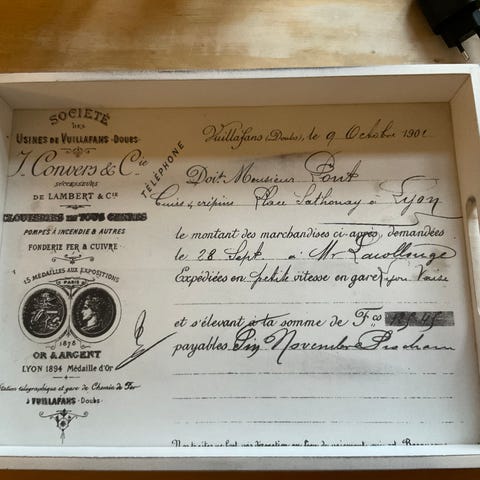 SOCIÉTÉ
DES
USINES DE VUILLAFANS-DOUBS-
J. Convers & Cie
SUCCESSEURS
DE LAMBERT & CIE
CLOUTERIES EN TOUS GENRES
POMPES A INCENDIE & AUTRES
FONDERIE FER & CUIVRE
15 MÉDAILLES AUX EXPOSITIONS
PARIS
1878
OR & ARGENT
LYON 1894 Médaille d'Or
Station télégraphique et gare de Chemin de Fer
à VUILLAFANS -Doubs-
TÉLÉPHONE
Vuillafans (Doubs), le 9 Octobre 1901
Doit Monsieur Pont
Cuirs & crépins Place Sathonay à Lyon
le montant des marchandises ci-après, demandées
le 28 Sept à Mr
Expédiées en petite vitesse en gare Lyon Vaise
et s'élevant à la somme de Fcs
payables Fin Novembre Prochain